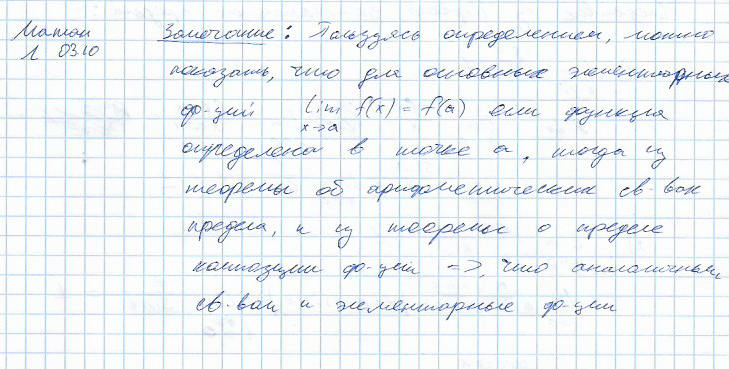 Матан
Л 03.10
Замечание: Пользуясь определением, можно
показать, что для основных элементарных
ф-ций lim f(x) = f(a) если функция
x→a
определена в точке a, тогда из
теоремы об арифметических св-вах
предела, и из теоремы о пределе
композиции ф-ций =>, что аналогичным
св-вом и элементарные ф-ции